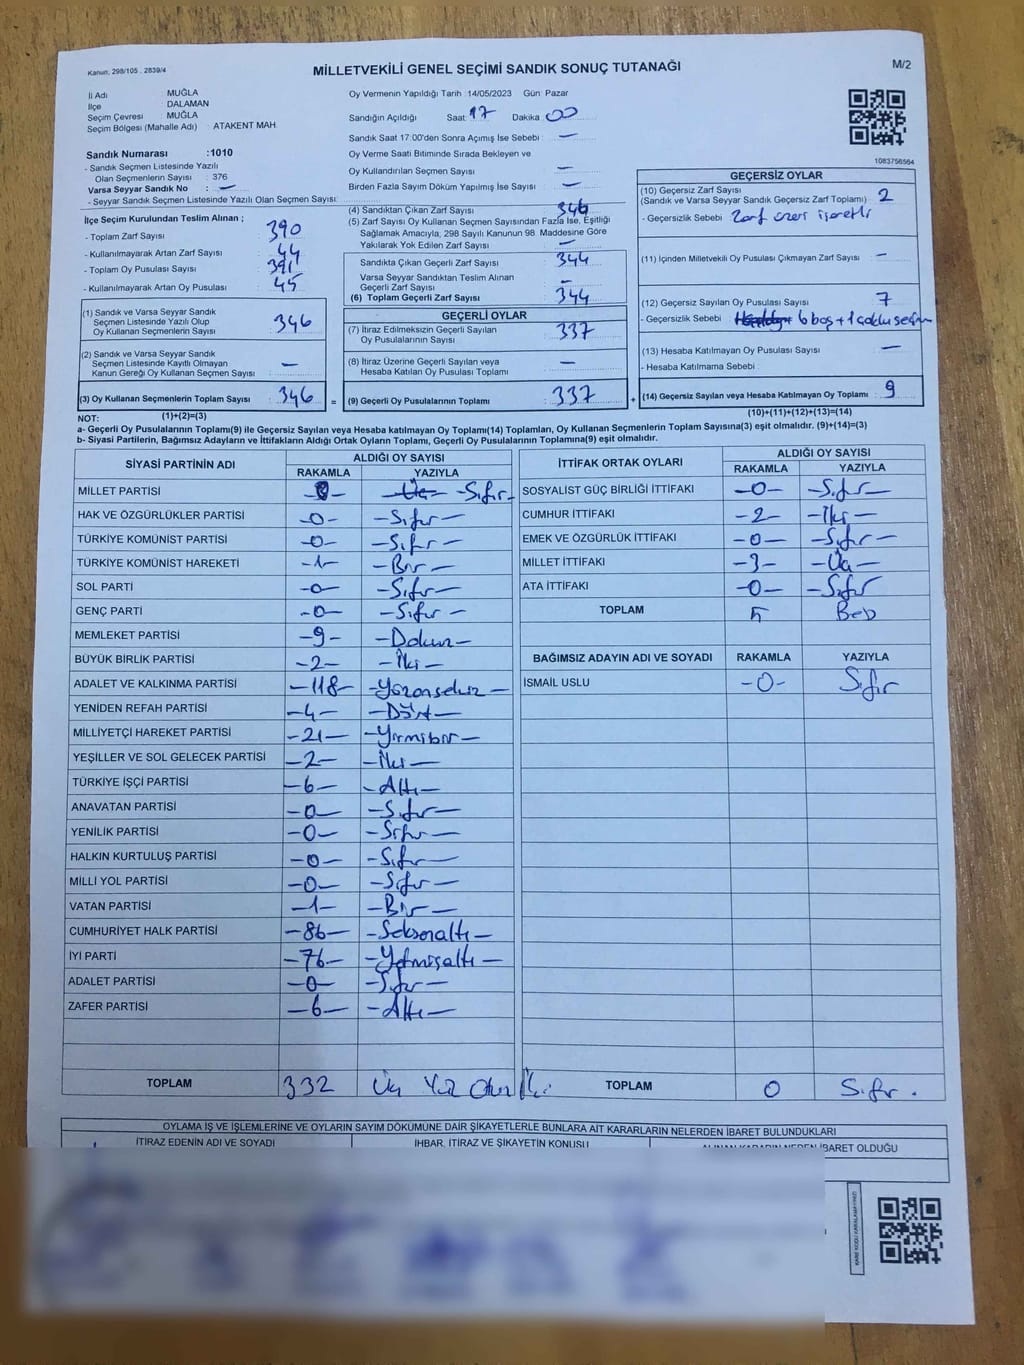 Kanun. 298/105 . 2839/4
MİLLETVEKİLİ GENEL SEÇİMİ SANDIK SONUÇ TUTANAĞI
M/2
İl Adı MUĞLA
İlçe DALAMAN
Seçim Çevresi MUĞLA
Seçim Bölgesi (Mahalle Adı) : ATAKENT MAH.
Oy Vermenin Yapıldığı Tarih :14/05/2023 Gün: Pazar
Sandığın Açıldığı Saat: 17 Dakika: 00
Sandık Saat 17:00'den Sonra Açımış İse Sebebi : —
Oy Verme Saati Bitiminde Sırada Bekleyen ve
Oy Kullandırılan Seçmen Sayısı : —
Birden Fazla Sayım Döküm Yapılmış İse Sayısı : —
1083756564
Sandık Numarası :1010
- Sandık Seçmen Listesinde Yazılı
Olan Seçmenlerin Sayısı : 376
Varsa Seyyar Sandık No : —
- Seyyar Sandık Seçmen Listesinde Yazılı Olan Seçmen Sayısı:
İlçe Seçim Kurulundan Teslim Alınan ;
- Toplam Zarf Sayısı : 390
- Kullanılmayarak Artan Zarf Sayısı : 44
- Toplam Oy Pusulası Sayısı : 391
- Kullanılmayarak Artan Oy Pusulası : 45
(1) Sandık ve Varsa Seyyar Sandık
Seçmen Listesinde Yazılı Olup
Oy Kullanan Seçmenlerin Sayısı : 346
(2) Sandık ve Varsa Seyyar Sandık
Seçmen Listesinde Kayıtlı Olmayan
Kanun Gereği Oy Kullanan Seçmen Sayısı : —
(3) Oy Kullanan Seçmenlerin Toplam Sayısı : 346 =
(1)+(2)=(3)
(4) Sandıktan Çıkan Zarf Sayısı : 346
(5) Zarf Sayısı Oy Kullanan Seçmen Sayısından Fazla İse, Eşitliği
Sağlamak Amacıyla, 298 Sayılı Kanunun 98. Maddesine Göre
Yakılarak Yok Edilen Zarf Sayısı : —
Sandıkta Çıkan Geçerli Zarf Sayısı : 344
Varsa Seyyar Sandıktan Teslim Alınan
Geçerli Zarf Sayısı : —
(6) Toplam Geçerli Zarf Sayısı : 344
GEÇERLİ OYLAR
(7) İtiraz Edilmeksizin Geçerli Sayılan
Oy Pusulalarının Sayısı : 337
(8) İtiraz Üzerine Geçerli Sayılan veya
Hesaba Katılan Oy Pusulası Toplamı : —
(9) Geçerli Oy Pusulalarının Toplamı : 337 +
GEÇERSİZ OYLAR
(10) Geçersiz Zarf Sayısı
(Sandık ve Varsa Seyyar Sandık Geçersiz Zarf Toplamı) : 2
- Geçersizlik Sebebi : Zarf üzeri işaretli
(11) İçinden Milletvekili Oy Pusulası Çıkmayan Zarf Sayısı : —
(12) Geçersiz Sayılan Oy Pusulası Sayısı : 7
- Geçersizlik Sebebi : 6 boş + 1 çoklu seçim
(13) Hesaba Katılmayan Oy Pusulası Sayısı : —
- Hesaba Katılmama Sebebi :
(14) Geçersiz Sayılan veya Hesaba Katılmayan Oy Toplamı : 9
(10)+(11)+(12)+(13)=(14)
NOT:
a- Geçerli Oy Pusulalarının Toplamı(9) ile Geçersiz Sayılan veya Hesaba katılmayan Oy Toplamı(14) Toplamları, Oy Kullanan Seçmenlerin Toplam Sayısına(3) eşit olmalıdır. (9)+(14)=(3)
b- Siyasi Partilerin, Bağımsız Adayların ve İttifakların Aldığı Ortak Oyların Toplamı, Geçerli Oy Pusulalarının Toplamına(9) eşit olmalıdır.
SİYASİ PARTİNİN ADI ALDIĞI OY SAYISI
RAKAMLA YAZIYLA
MİLLET PARTİSİ -0- -Sıfır-
HAK VE ÖZGÜRLÜKLER PARTİSİ -0- -Sıfır-
TÜRKİYE KOMÜNİST PARTİSİ -0- -Sıfır-
TÜRKİYE KOMÜNİST HAREKETİ -1- -Bir-
SOL PARTİ -0- -Sıfır-
GENÇ PARTİ -0- -Sıfır-
MEMLEKET PARTİSİ -9- -Dokuz-
BÜYÜK BİRLİK PARTİSİ -2- -İki-
ADALET VE KALKINMA PARTİSİ -118- -Yüzonsekiz-
YENİDEN REFAH PARTİSİ -4- -Dört-
MİLLİYETÇİ HAREKET PARTİSİ -21- -Yirmibir-
YEŞİLLER VE SOL GELECEK PARTİSİ -2- -İki-
TÜRKİYE İŞÇİ PARTİSİ -6- -Altı-
ANAVATAN PARTİSİ -0- -Sıfır-
YENİLİK PARTİSİ -0- -Sıfır-
HALKIN KURTULUŞ PARTİSİ -0- -Sıfır-
MİLLİ YOL PARTİSİ -0- -Sıfır-
VATAN PARTİSİ -1- -Bir-
CUMHURİYET HALK PARTİSİ -86- -Seksenaltı-
İYİ PARTİ -76- -Yetmişaltı-
ADALET PARTİSİ -0- -Sıfır-
ZAFER PARTİSİ -6- -Altı-
TOPLAM 332 Üç Yüz Otuz İki
İTTİFAK ORTAK OYLARI ALDIĞI OY SAYISI
RAKAMLA YAZIYLA
SOSYALİST GÜÇ BİRLİĞİ İTTİFAKI -0- -Sıfır-
CUMHUR İTTİFAKI -2- -İki-
EMEK VE ÖZGÜRLÜK İTTİFAKI -0- -Sıfır-
MİLLET İTTİFAKI -3- -Üç-
ATA İTTİFAKI -0- -Sıfır
TOPLAM 5 Beş
BAĞIMSIZ ADAYIN ADI VE SOYADI RAKAMLA YAZIYLA
İSMAİL USLU -0- Sıfır
TOPLAM 0 Sıfır.
OYLAMA İŞ VE İŞLEMLERİNE VE OYLARIN SAYIM DÖKÜMÜNE DAİR ŞİKAYETLERLE BUNLARA AİT KARARLARIN NELERDEN İBARET BULUNDUKLARI
İTİRAZ EDENİN ADI VE SOYADI İHBAR, İTİRAZ VE ŞİKAYETİN KONUSU ALINAN KARARIN NEDEN İBARET OLDUĞU
KARE KODU KARALAMAYINIZ!